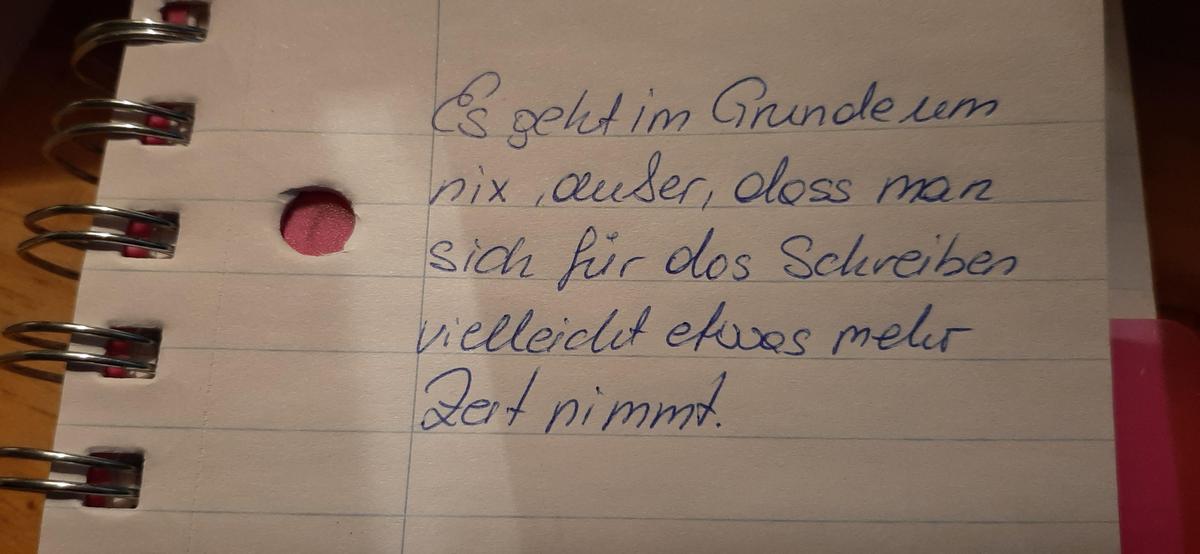 Es geht im Grunde um
nix, außer, dass man
sich für das Schreiben
vielleicht etwas mehr
Zeit nimmt.